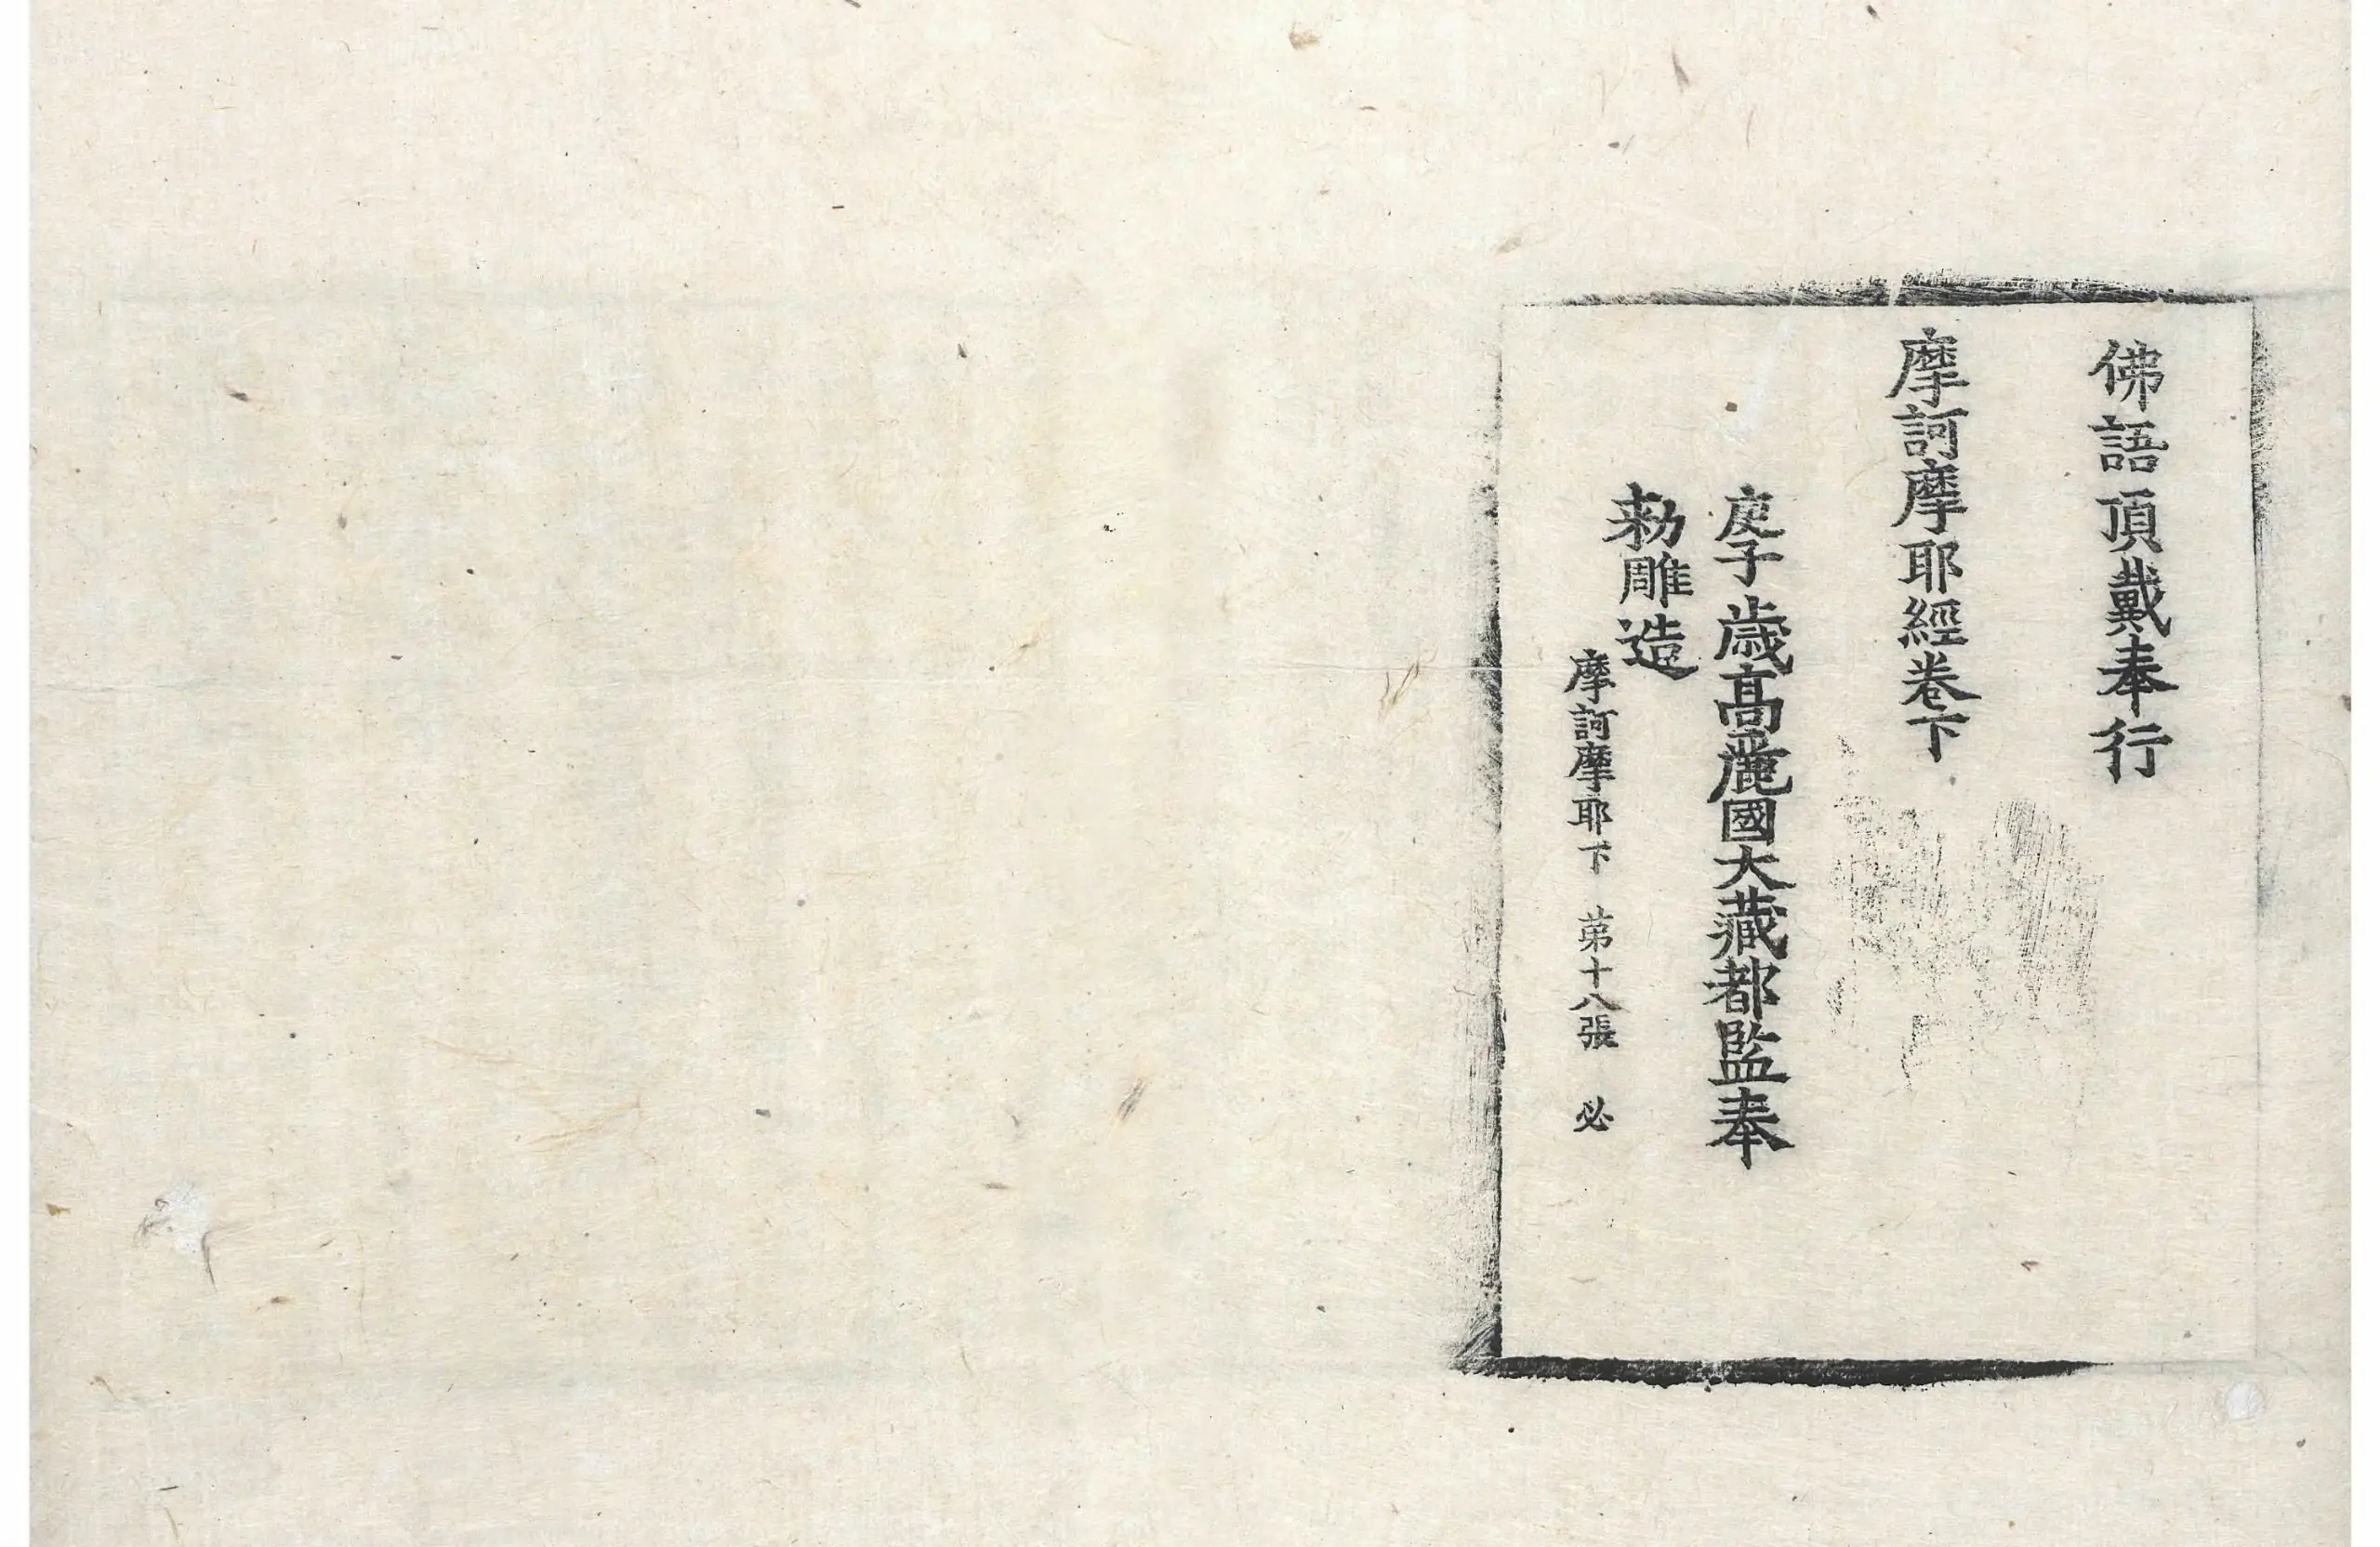 佛語頂戴奉行
摩訶摩耶經卷下
庚子歲高麗國大藏都監奉
勑雕造
摩訶摩耶下 苐十八張 必